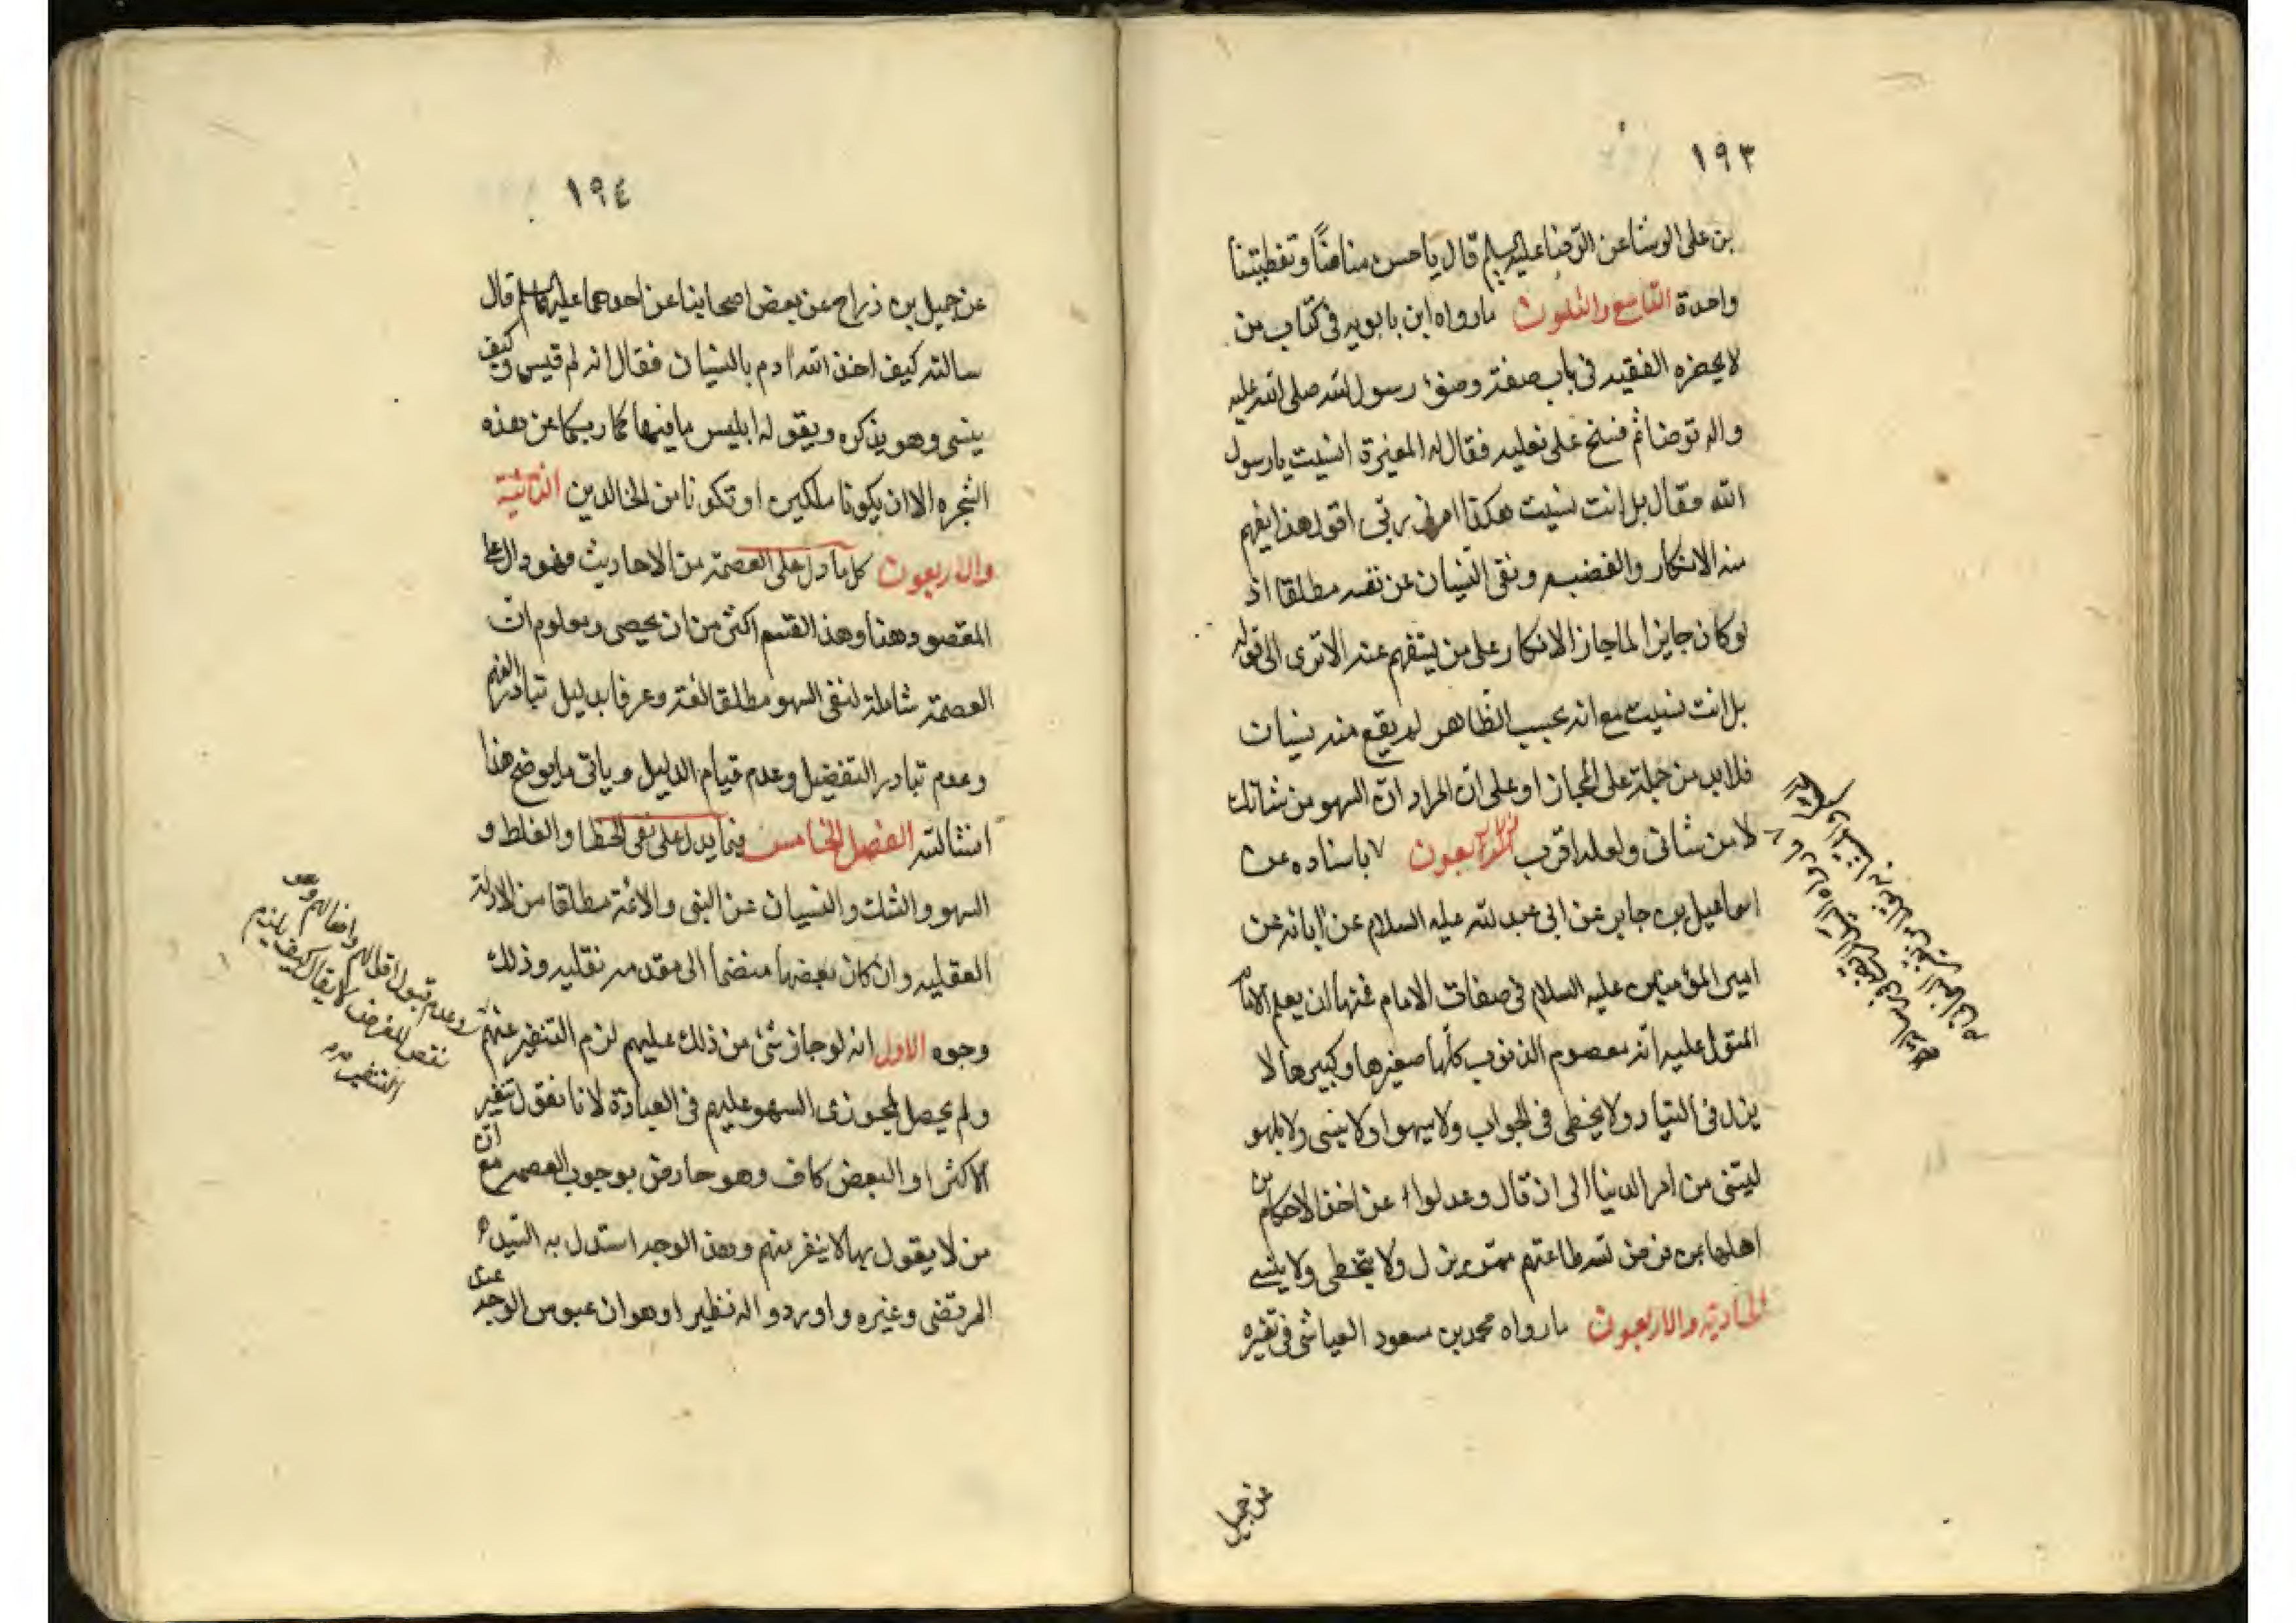 ١٩٣
بن علي الوشا عن الرضا عليه السلم قال يا حسن منامنا ويقظتنا
واحدة التاسع والثلثون ما رواه ابن بابويه في كتاب من
لا يحضره الفقيه في باب صفة وضوء رسول الله صلى الله عليه
واله توضا ثم مسح على نعليه فقال له المغيرة انسيت يا رسول
الله فقال بل انت نسيت هكذا امرني ربي اقول هذا يفهم
منه الانكار والغضب ونفي النسيان عن نفسه مطلقا اذ
لو كان جايزا لما جاز الانكار على من يستفهم عنه الا ترى الى قوله
بل انت نسيت مع انه بحسب الظاهر لم يقع منه نسيان
فلا بد من حمله على المجاز او على ان المراد ان السهو من شانك
لا من شاني ولعله اقرب الاربعون باسناده عن
اسماعيل بن جابر عن ابي عبد الله عليه السلام عن ابائه عن
امير المؤمنين عليه السلام في صفات الامام فمنها ان يعلم الامام
المتولى عليه انه معصوم الذنوب كلها صغيرها وكبيرها لا
يزل في الفتيا ولا يخطى في الجواب ولا يسهوا ولا ينسى ولا يلهو
لشي من امر الدنيا الى ان قال وعدلوا عن اخذ الاحكام من
اهلها ممن فرض الله طاعتهم ممن لا يزل ولا يخطى ولا ينسى
الحادية والاربعون ما رواه محمد بن مسعود العياشي في تفسيره
عن جميل
١٩٤
عن جميل بن دراج عن بعض اصحابنا عن احدهما عليهما السلم قال
سالته كيف اخذ الله ادم بالنسيان فقال انه لم ينس وكيف
ينسى وهو يذكره ويقول له ابليس ما نهاكما ربكما عن هذه
الشجره الا ان يكونا ملكين او تكونا من الخالدين الثانية
والاربعون كل ما دل على العصمة من الاحاديث فهو دال على
المقصود هنا وهذا القسم اكثر من ان يحصى ومعلوم ان
العصمة شاملة لنفي السهو مطلقا لغة وعرفا بدليل تبادر الفهم
وعدم تبادر التفضيل وعدم قيام الدليل وياتي ما يوضح هذا
انشا الله الفصل الخامس فيما يدل على نفي الخطا والغلط و
السهو والشك والنسيان عن النبي والائمة مطلقا من الادلة
العقليه وان كان بعضها منضما الى مقدمه نقليه وذلك
وجوه الاول انه لو جاز شئ من ذلك عليهم لزم التنفير عنهم
وعدم قبول اقوالهم وافعالهم وهو
نقض للغرض لا يقال كيف يلزم
التنفير
ولم يحصل لمجوزي السهو عليهم في العبادة لانا نقول تنفير
الاكثر او البعض كاف وهو حاصل بوجوب العصمه مع ان
من لا يقول بها لا ينفر منهم وهذا الوجه استدل به السيد
المرتضى وغيره واوردوا له نظيرا وهو ان عبوس الوجه عند